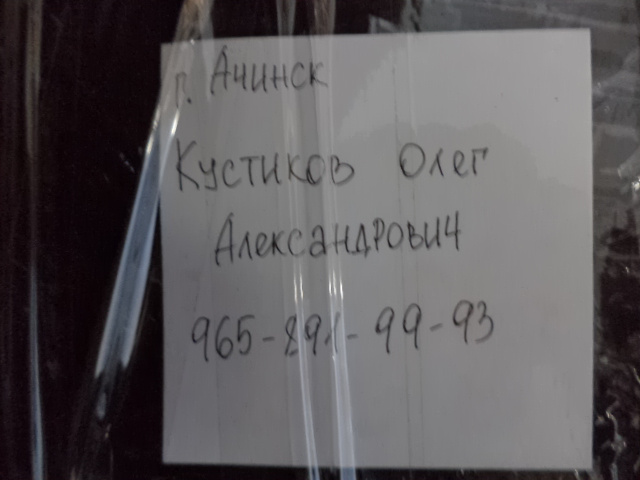 г. Ачинск
Кустиков Олег
Александрович
965-891-99-93